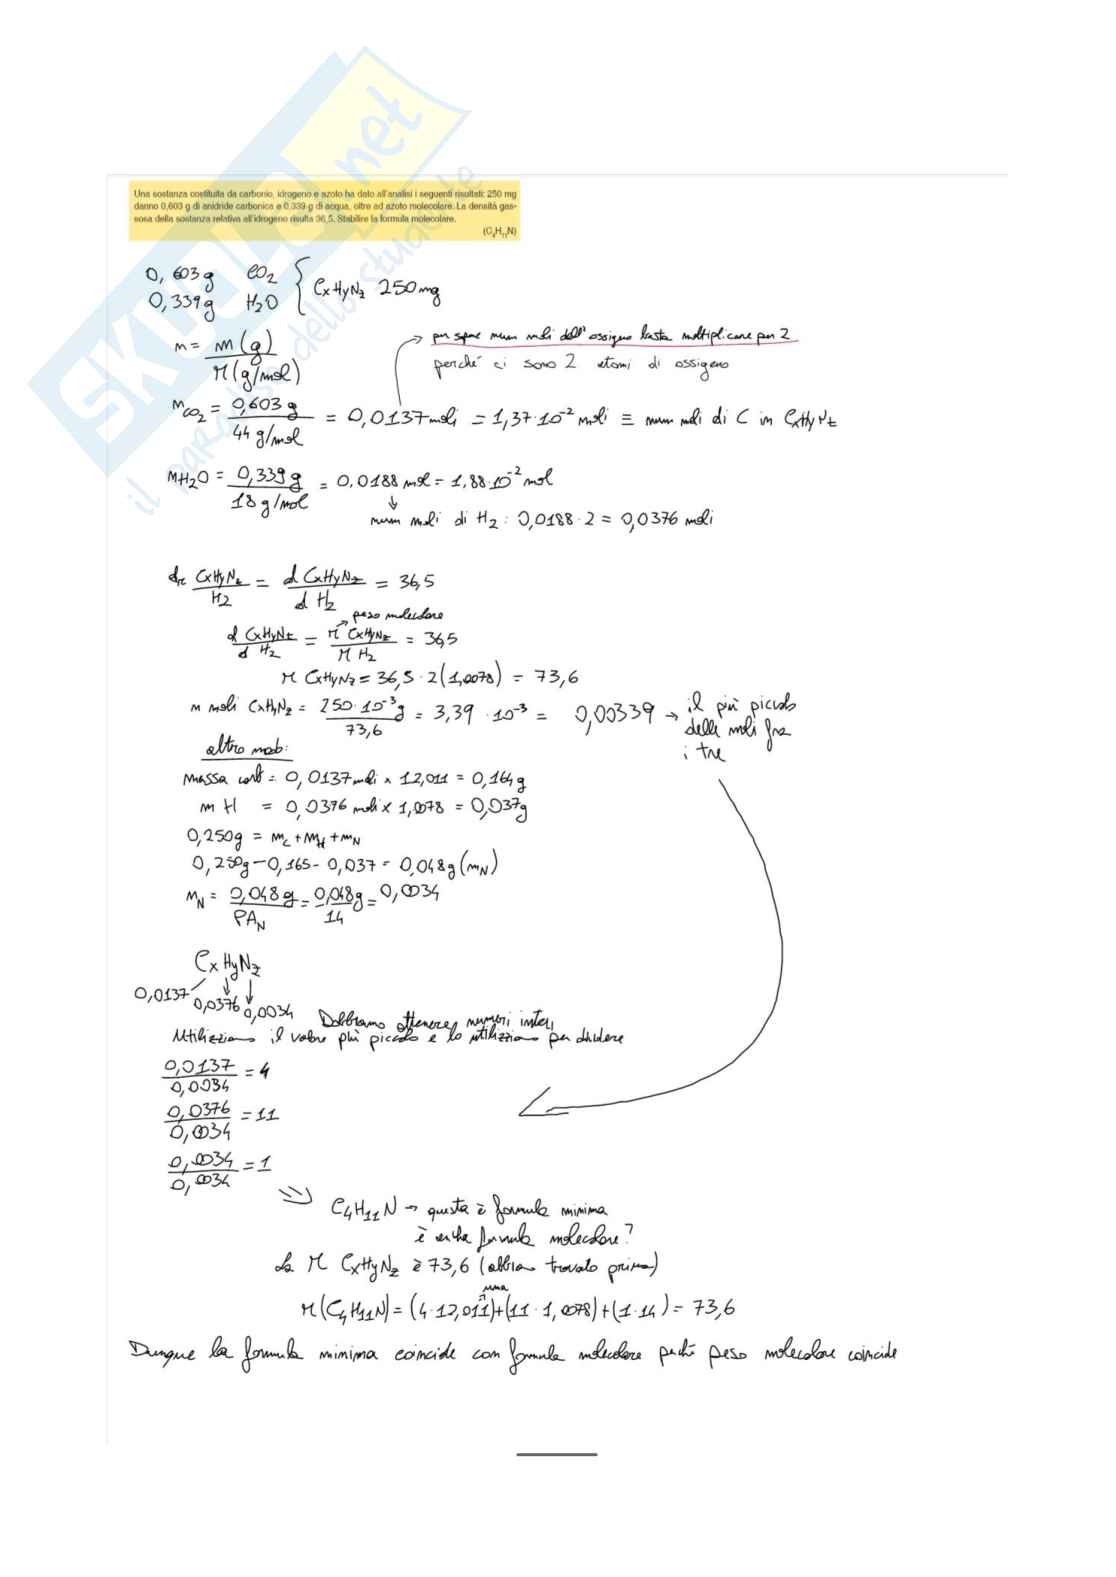 SKUOLA.net
il paradiso dello studente
Una sostanza costituita da carbonio, idrogeno e azoto ha dato all'analisi i seguenti risultati: 250 mg
danno 0,603 g di anidride carbonica e 0,339 g di acqua, oltre ad azoto molecolare. La densità gas-
sosa della sostanza relativa all'idrogeno risulta 36,5. Stabilire la formula molecolare.
(C₄H₁₁N)
0,603 g CO₂
0,339 g H₂O { CxHyNz 250 mg
n = m (g) / M (g/mol)
per sapere num moli dell'ossigeno basta moltiplicare per 2
perché ci sono 2 atomi di ossigeno
nCO₂ = 0,603 g / 44 g/mol = 0,0137 moli = 1,37·10⁻² moli ≡ num moli di C in CxHyNz
nH₂O = 0,339 g / 18 g/mol = 0,0188 mol = 1,88·10⁻² mol
num moli di H₂ : 0,0188·2 = 0,0376 moli
dr CxHyNz / H₂ = d CxHyNz / d H₂ = 36,5
peso molecolare
d CxHyNz / d H₂ = M CxHyNz / M H₂ = 36,5
M CxHyNz = 36,5·2(1,0078) = 73,6
n moli CxHyNz = 250·10⁻³ g / 73,6 = 3,39·10⁻³ = 0,00339 → il più piccolo
delle moli fra
i tre
altro mod:
massa carb = 0,0137 moli × 12,011 = 0,164 g
m H = 0,0376 moli × 1,0078 = 0,037 g
0,250 g = mC + mH + mN
0,250 g − 0,165 − 0,037 = 0,048 g (mN)
nN = 0,048 g / PAN = 0,048 g / 14 = 0,0034
CxHyNz
0,0137 0,0376 0,0034
Dobbiamo ottenere numeri interi
Utilizziamo il valore più piccolo e lo utilizziamo per dividere
0,0137 / 0,0034 = 4
0,0376 / 0,0034 = 11
0,0034 / 0,0034 = 1
C₄H₁₁N → questa è formula minima
è anche formula molecolare?
La M CxHyNz è 73,6 (abbiamo trovato prima)
uma
M(C₄H₁₁N) = (4·12,011)+(11·1,0078)+(1·14) = 73,6
Dunque la formula minima coincide con formula molecolare perché peso molecolare coincide